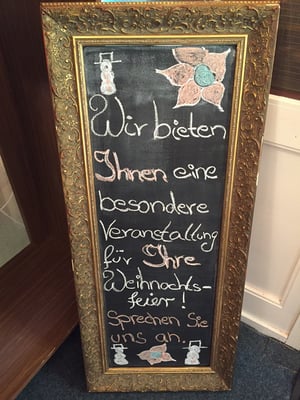 Wir bieten
Ihnen eine
besondere
Veranstaltung
für Ihre
Weihnachts-
feier!
Sprechen Sie
uns an.